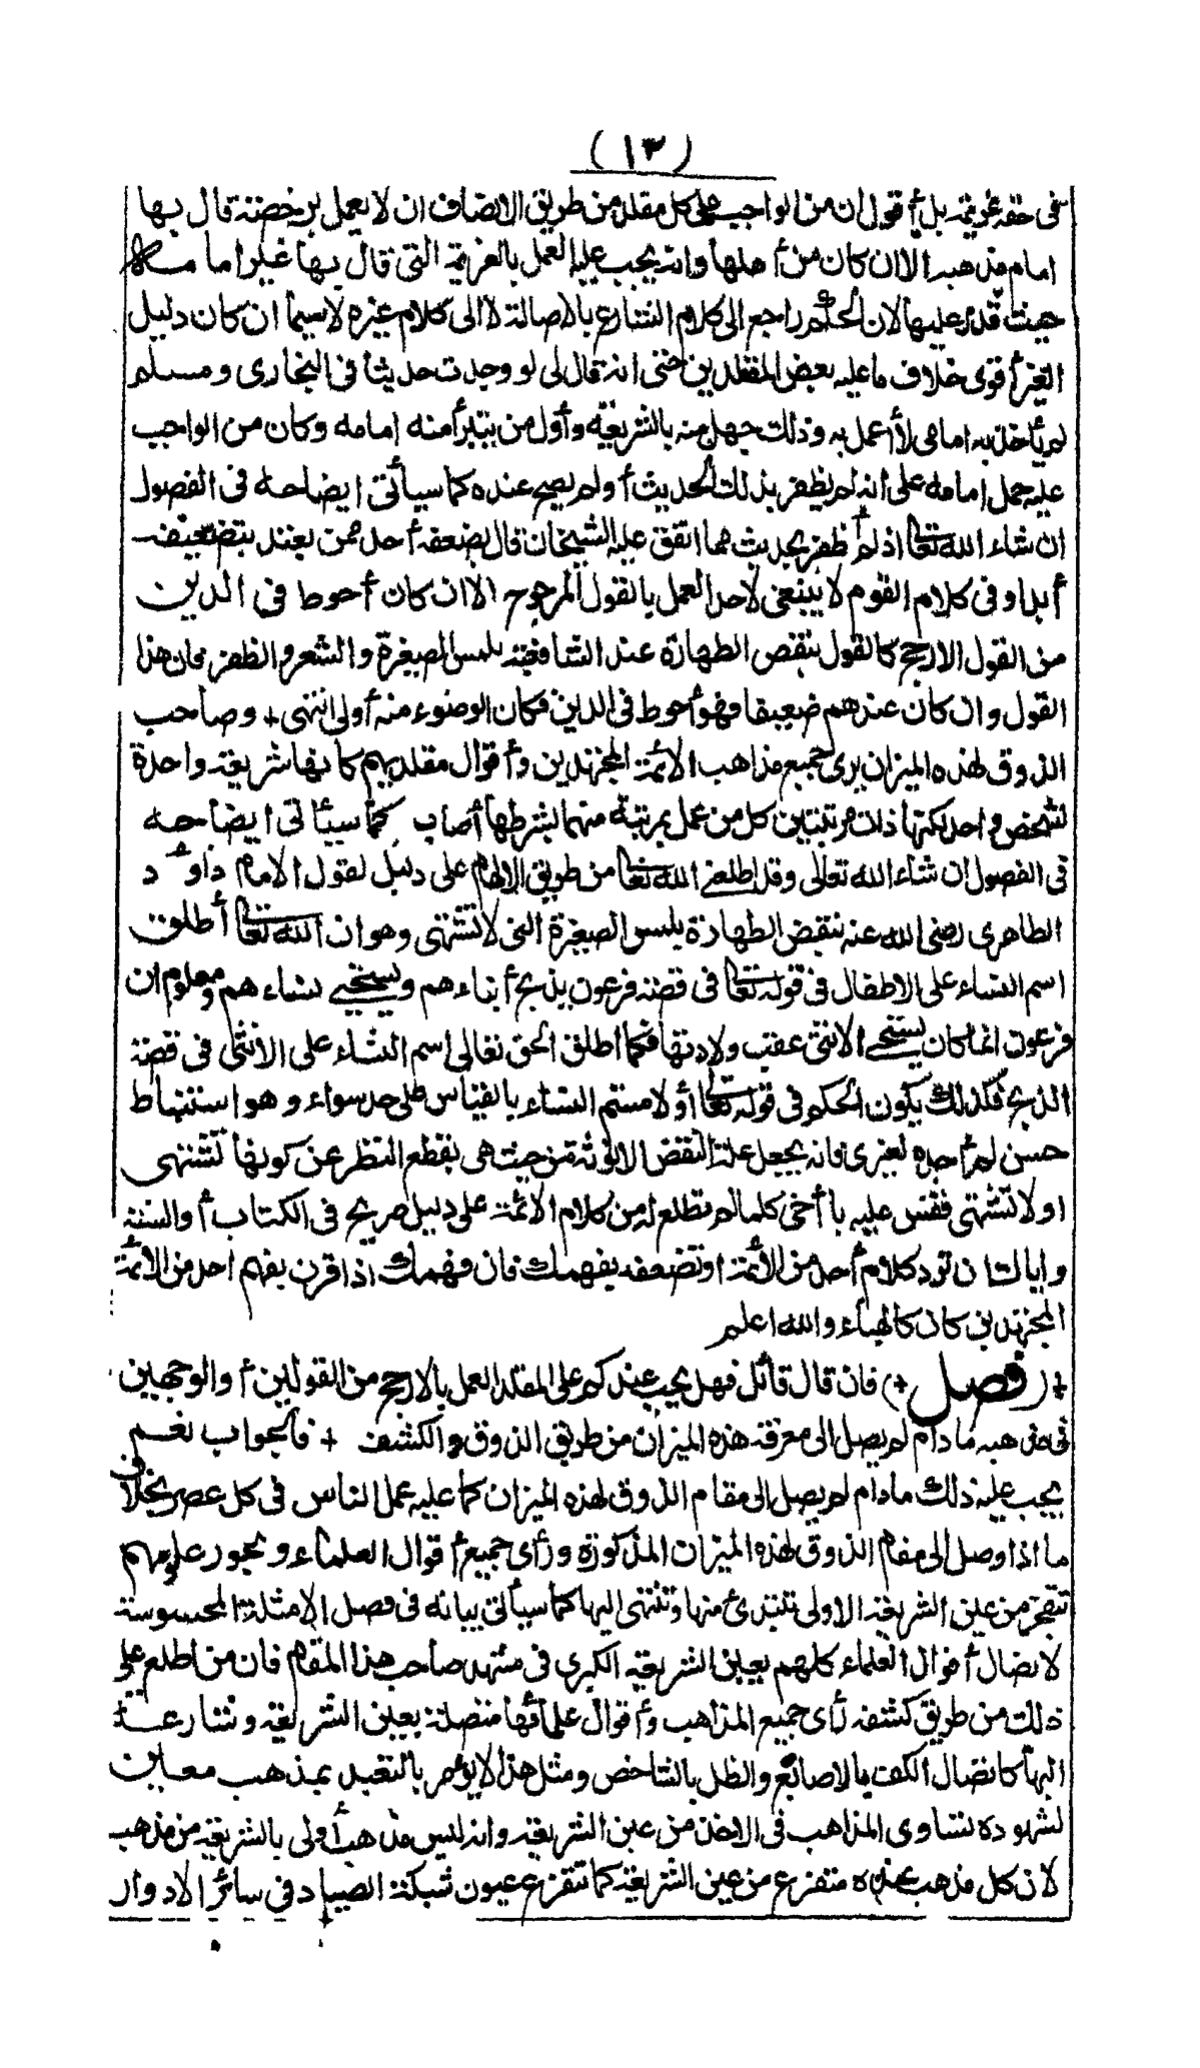 (١٣)
في حقه عزيمة بل أقول ان من الواجب على كل مقلد من طريق الانصاف ان لا يعمل برخصة قال بها
امام مذهبه الا ان كان من أهلها وانه يجب عليه العمل بالعزيمة التي قال بها غير امامه
حيث قدر عليها لان الحكم راجع الى كلام الشارع بالاصالة لا الى كلام غيره لاسيما ان كان دليل
الغير أقوى خلاف ما عليه بعض المقلدين حتى انه قال لي لو وجدت حديثا في البخاري ومسلم
لم يأخذ به امامي لا أعمل به وذلك جهل منه بالشريعة وأول من يتبرأ منه إمامه وكان من الواجب
عليه حمل إمامه على انه لم يظفر بذلك الحديث أو لم يصح عنده كما سيأتي ايضاحه في الفصول
ان شاء الله تعالى اذ لم أظفر بحديث مما اتفق عليه الشيخان قال بضعفه أحد ممن يعتد بتضعيفه
أبدا وفي كلام القوم لا ينبغي لاحد العمل بالقول المرجوح الا ان كان أحوط في الدين
من القول الارجح كالقول بنقض الطهارة عند الشافعية بلمس الصغيرة والشعر والظفر فان هذا
القول وان كان عندهم ضعيفا فهو أحوط في الدين فكان الوضوء منه أولى انتهى + وصاحب
الذوق لهذه الميزان يرى جميع مذاهب الائمة المجتهدين وأقوال مقلديهم كانها شريعة واحدة
لشخص واحد لكنها ذات مرتبتين كل من عمل بمرتبة منهما بشرطها أصاب كما سيأتي ايضاحه
في الفصول ان شاء الله تعالى وقد اطلعني الله تعالى من طريق الالهام على دليل لقول الامام داود
الظاهري رضي الله عنه بنقض الطهارة بلمس الصغيرة التي لا تشتهى وهو ان الله تعالى أطلق
اسم النساء على الاطفال في قوله تعالى في قصة فرعون يذبح أبناءهم ويستحيي نساءهم ومعلوم ان
فرعون انما كان يستحيي الانثى عقب ولادتها فكما أطلق الحق تعالى اسم النساء على الأنثى في قصة
الذبح فكذلك يكون الحكم في قوله تعالى أو لامستم النساء بالقياس على حد سواء وهو استنباط
حسن لم أجده لغيري فانه يجعل علة النقض الانوثة من حيث هي بقطع النظر عن كونها تشتهى
او لا تشتهى فقس عليه يا أخي كلما لم تطلع له من كلام الائمة على دليل صريح في الكتاب أو السنة
واياك ان ترد كلام أحد من الأئمة او تضعفه بفهمك فان فهمك اذا قرن بفهم احد من الائمة
المجتهدين كان كالهباء والله اعلم
+ (فصل +) فان قال قائل فهل يجب عندكم على المقلد العمل بالارجح من القولين أو الوجهين
في مذهبه ما دام لم يصل الى معرفة هذه الميزان من طريق الذوق والكشف + فالجواب نعم
يجب عليه ذلك مادام لم يصل الى مقام الذوق لهذه الميزان كما عليه عمل الناس في كل عصر بخلاف
ما اذا وصل الى مقام الذوق لهذه الميزان المذكورة ورأى جميع أقوال العلماء وبحور علومهم
تتفجر من عين الشريعة الاولى تبتدئ منها وتنتهي اليها كما سيأتي بيانه في فصل الامثلة المحسوسة
لاتصال أقوال العلماء كلهم بعين الشريعة الكبرى في مشهد صاحب هذا المقام فان من اطلع على
ذلك من طريق كشفه رأى جميع المذاهب وأقوال علمائها متصلة بعين الشريعة وشارعة
اليها كاتصال الكف بالاصابع والظل بالشاخص ومثل هذا لا يؤمر بالتعبد بمذهب معين
لشهوده تساوي المذاهب في الاخذ من عين الشريعة وانه ليس مذهب أولى بالشريعة من مذهب
لان كل مذهب عنده متفرع من عين الشريعة كما تتفرع عيون شبكة الصياد في سائر الادوار